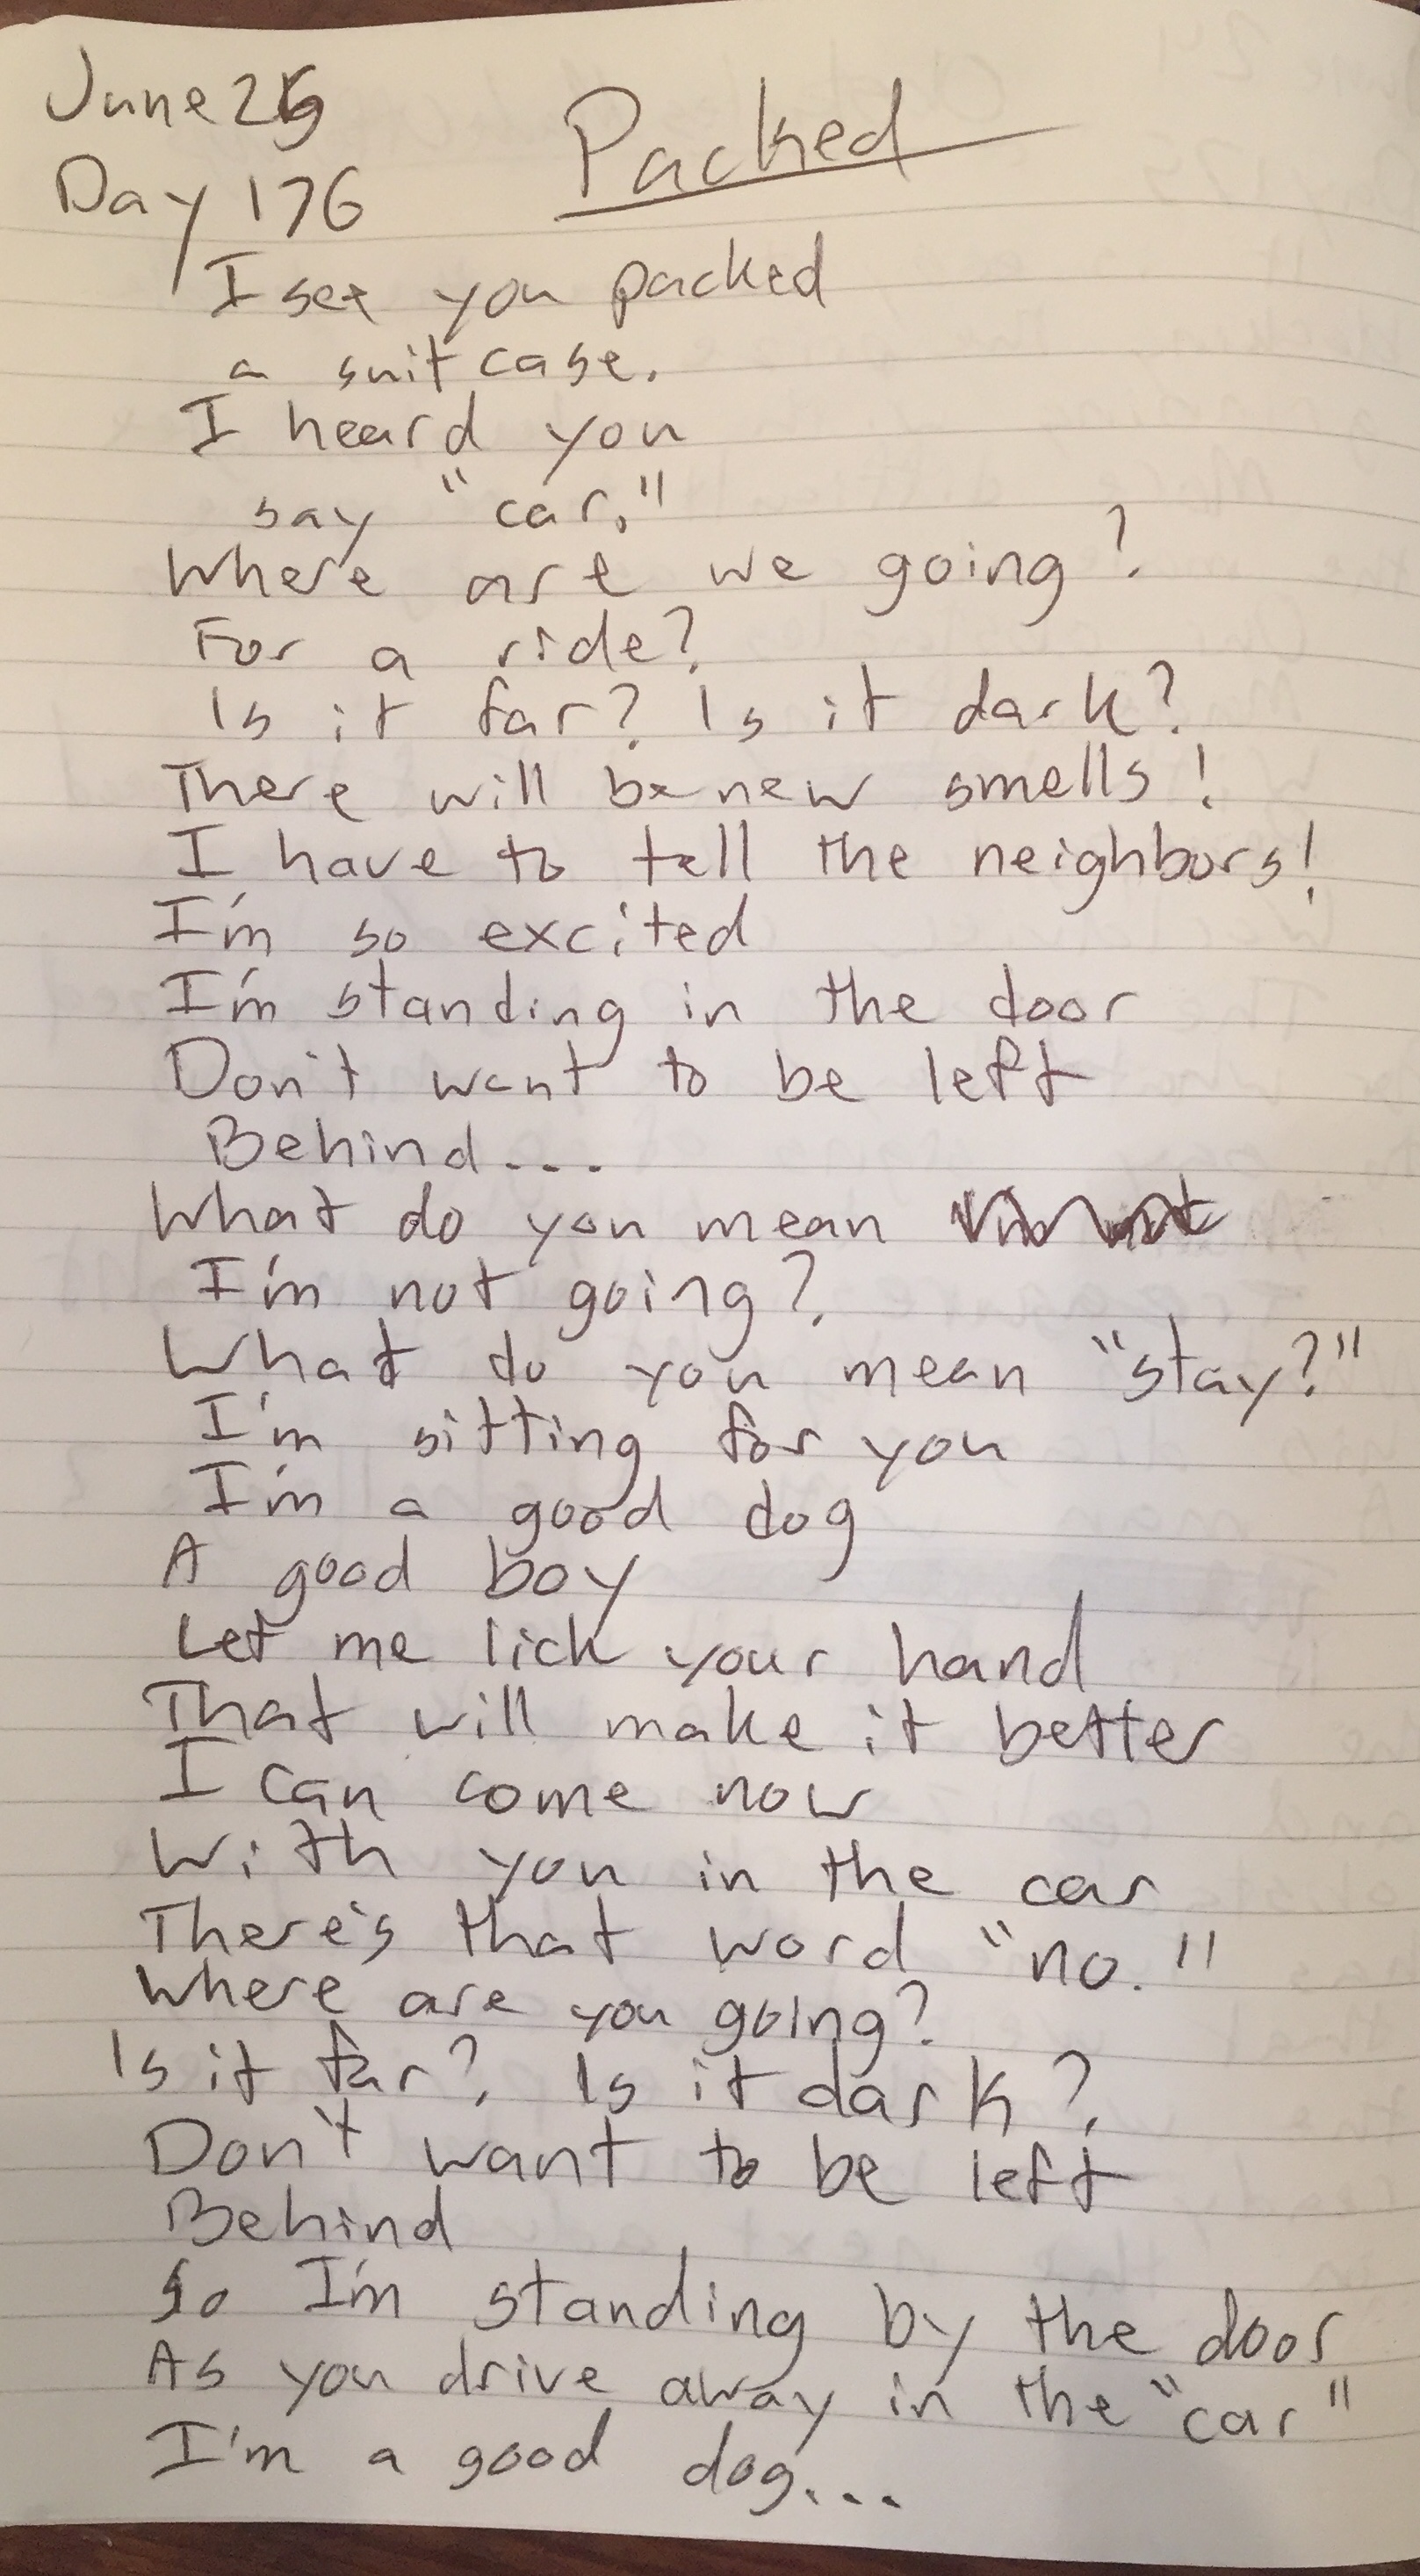 June 25
Packed
Day 176
I see you packed
a suitcase.
I heard you
say "car."
Where are we going?
For a ride?
Is it far? Is it dark?
There will be new smells!
I have to tell the neighbors!
I'm so excited
I'm standing in the door
Don't want to be left
Behind....
What do you mean
I'm not going?
What do you mean "stay?"
I'm sitting for you
I'm a good dog
A good boy
Let me lick your hand
That will make it better
I can come now
With you in the car
There's that word "no."
Where are you going?
Is it far? Is it dark?
Don't want to be left
Behind
So I'm standing by the door
As you drive away in the "car"
I'm a good dog...